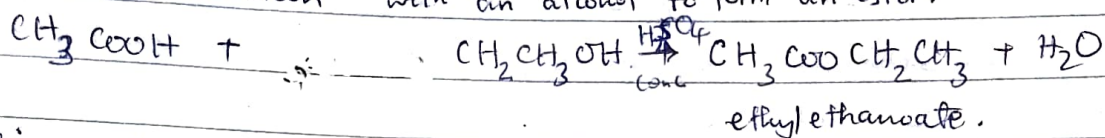 with an alcohol to form an ester.
CH₃COOH + CH₂CH₃OH H₂SO₄ → conc CH₃COOCH₂CH₃ + H₂O
ethyl ethanoate.